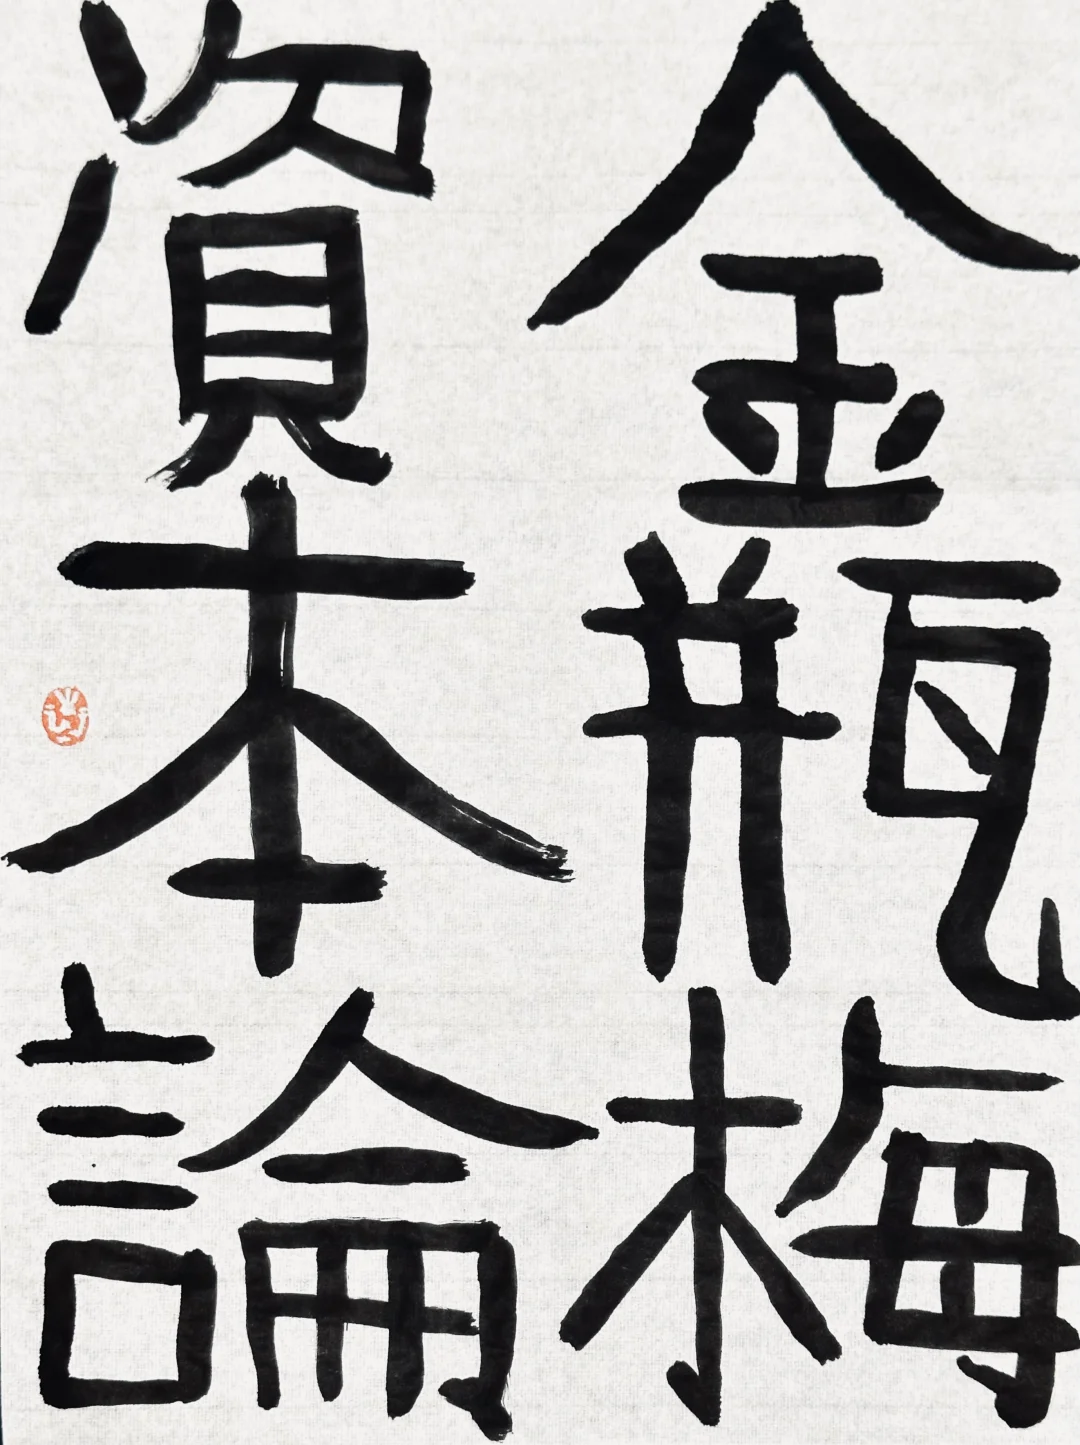 金瓶梅
資本論